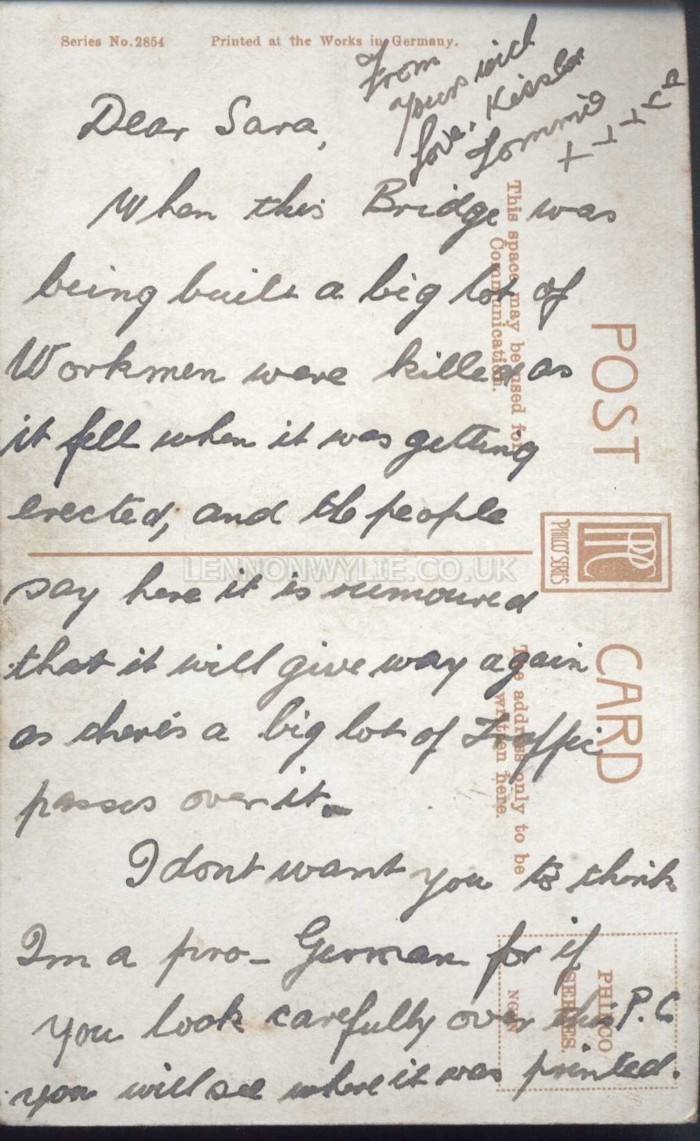 Series No.2854 Printed at the Works in Germany.
From
yours with
love. Kisses
Tommie
Dear Sara,
When this Bridge was
being built a big lot of
Workmen were killed as
it fell when it was getting
erected, and the people
say here it is rumoured
that it will give way again
as there's a big lot of Traffic
passes over it.
I dont want you to think
Im a pro-German for if
you look carefully over this P.C
you will see where it was printed.
POST CARD
This space may be used for
Communication.
The address only to be
written here.
PHILCO SERIES
PHILCO
SERIES.
LENNONWYLIE.CO.UK